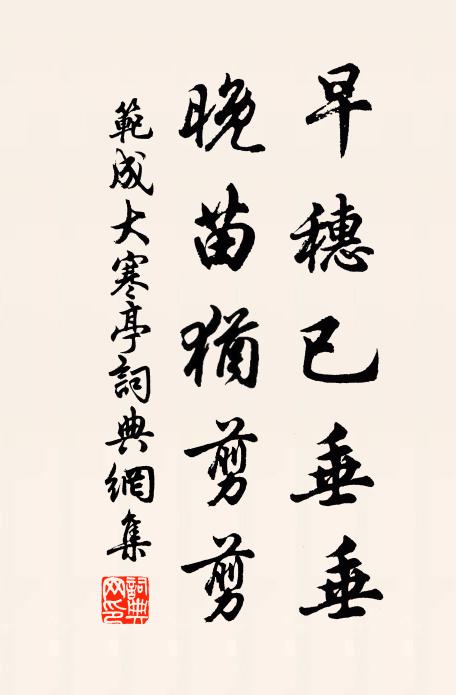 早穗已垂垂
晚苗猶剪剪
範成大寒亭詞典網集
詞典網印